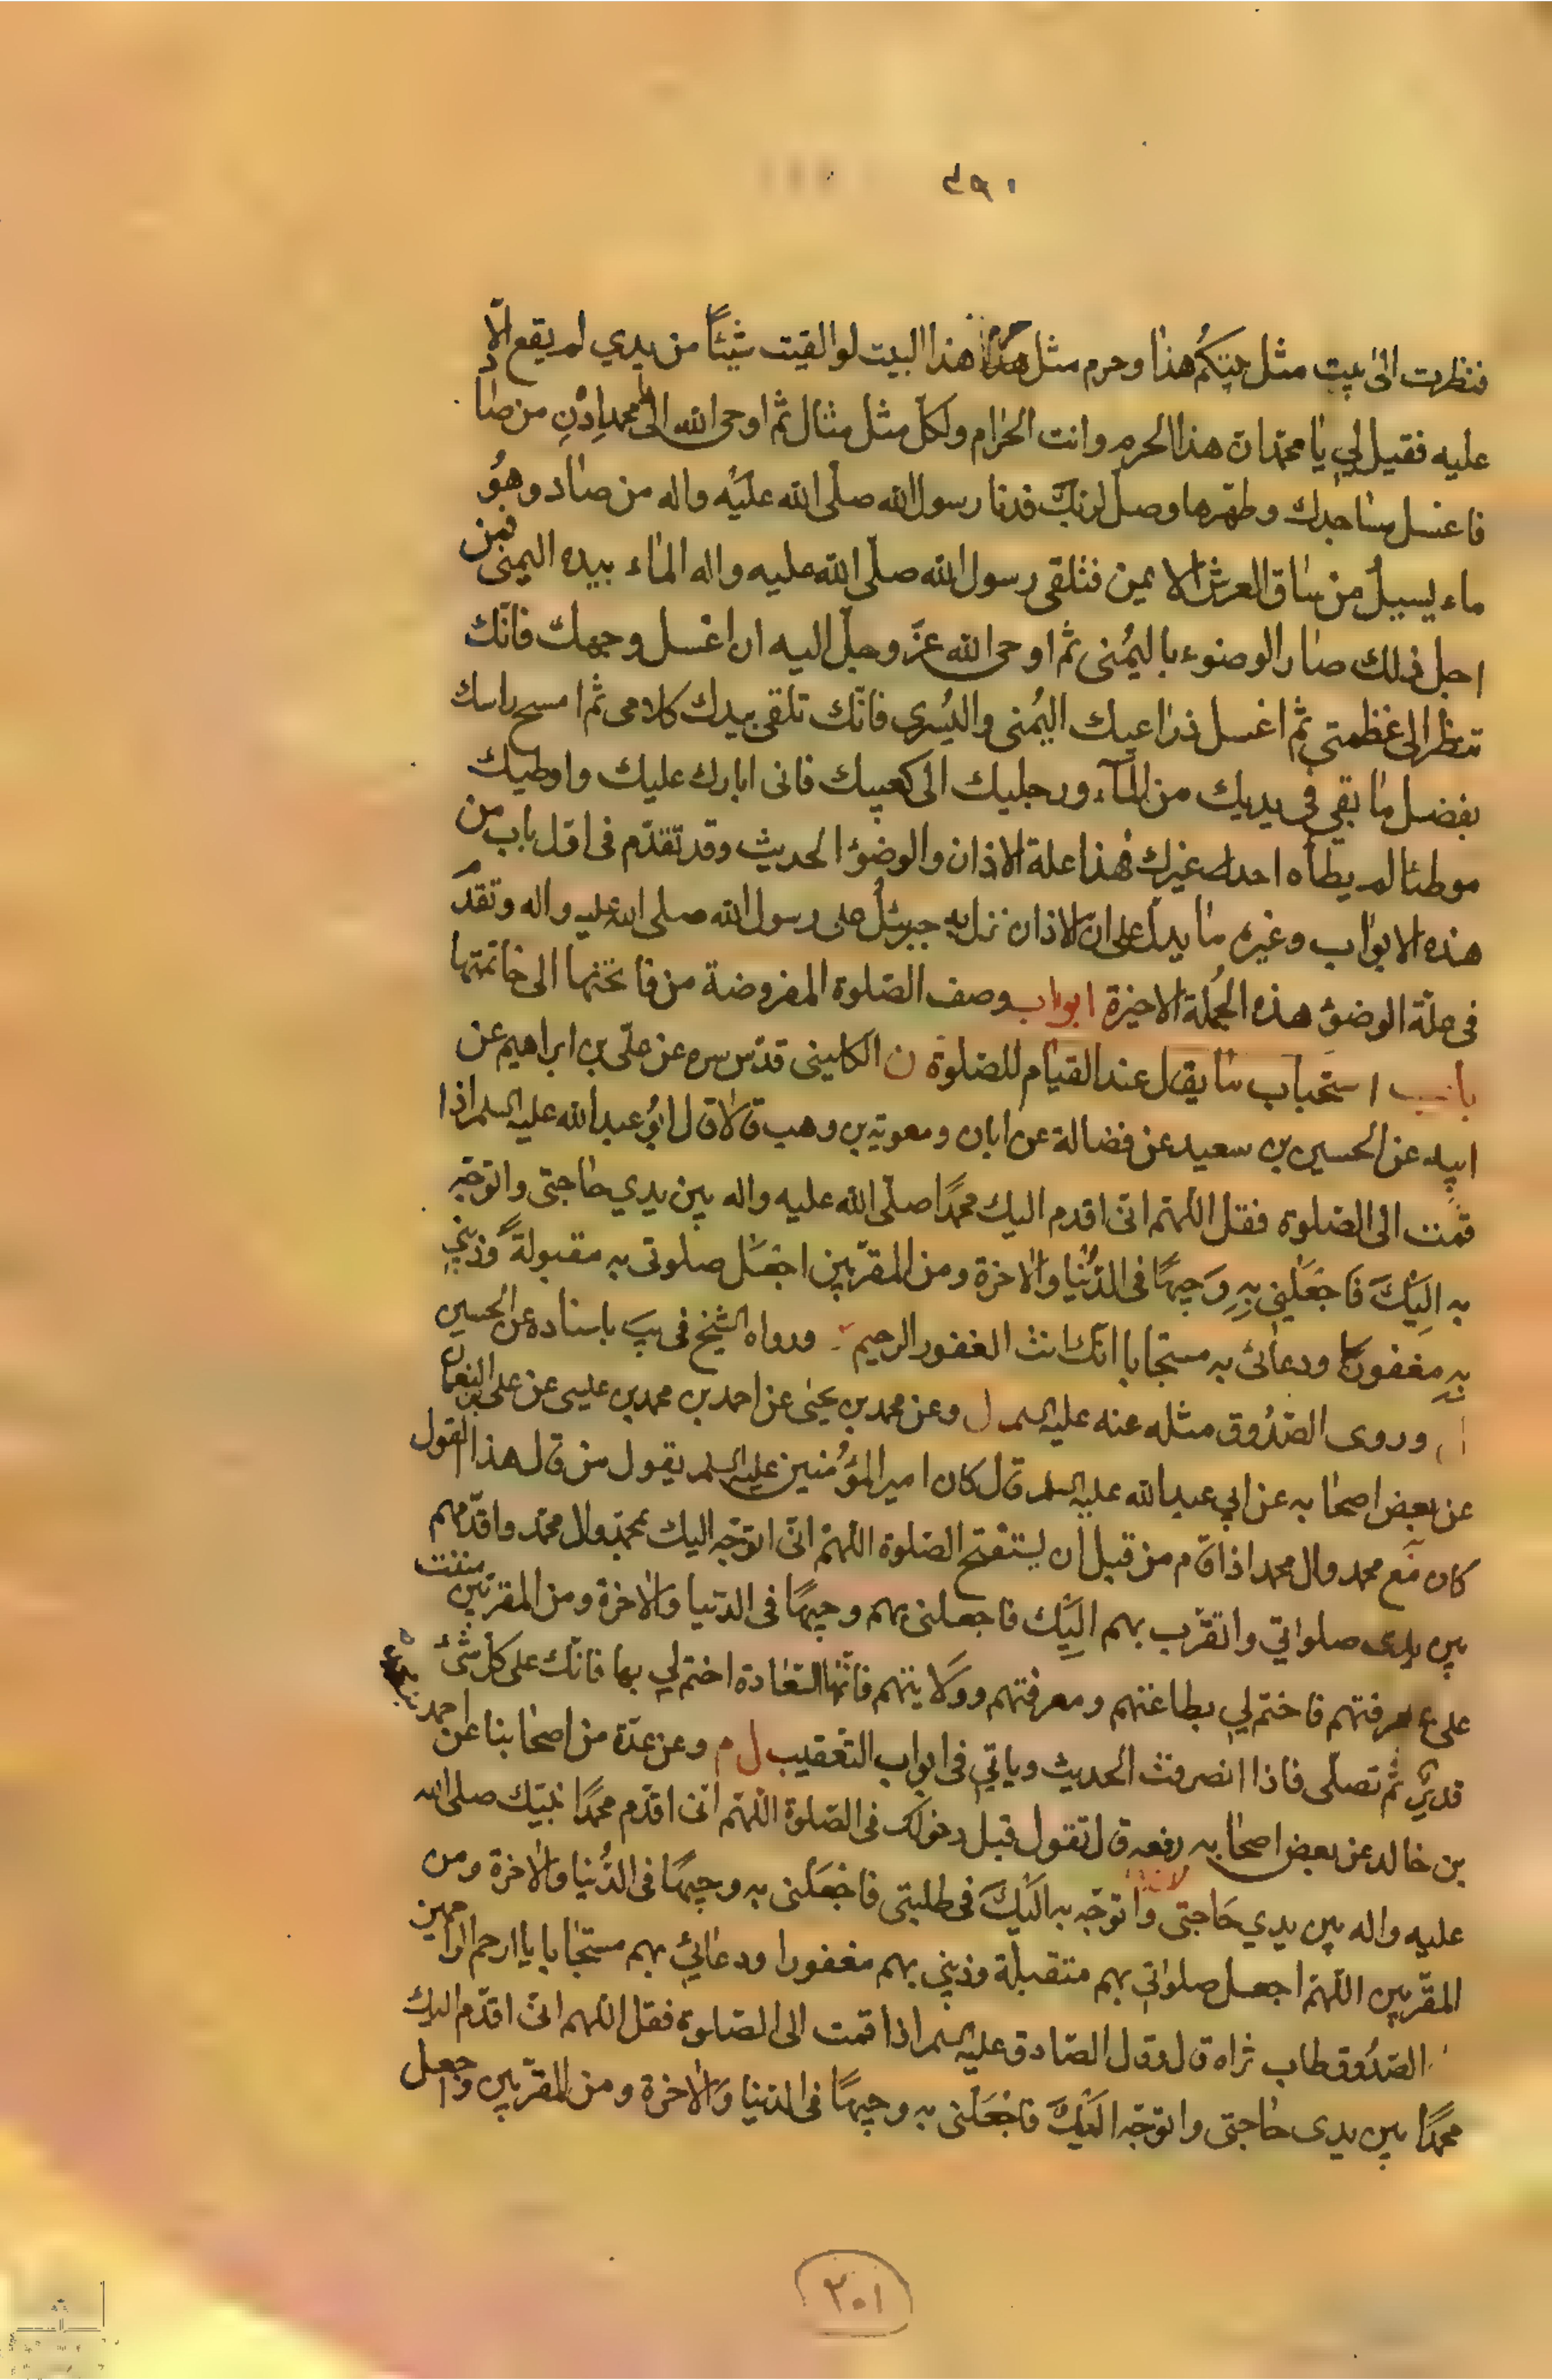 ٤٩٠
فنظرت الى بيت مثل بيتكم هذا وحرم مثل حرم هذا البيت لو القيت شيئًا من يدي لم يقع الّا
عليه فقيل لي يا محمّد ان هذا الحرم وانت الحرام ولكل مثل مثال ثم اوحى الله الى يا محمد ادْنِ من صاد
فاغسل مساجدك وطهّرها وصلّ لربّك فدنا رسول الله صلّى الله عليه واله من صاد وهُو
ماء يسيل من ساق العرش الايمن فتلقى رسول الله صلّى الله عليه واله الماء بيده اليمنى فمن
اجل ذلك صار الوضوء باليُمنى ثم اوحى الله عزّ وجلّ اليه ان اغسل وجهك فانّك
تنظر الى عظمتي ثم اغسل ذراعيك اليُمنى واليُسرى فانّك تلقى بيدك كلامى ثم امسح راسك
بفضل ما بقي في يديك من المآء ورجليك الى كعبيك فانى ابارك عليك واوطيك
موطئا لم يطأه احد غيرك فهذا علة الاذان والوضوء الحديث وقد تقدّم فى اوّل باب من
هذه الابواب وغيره ما يدلّ على ان الاذان نزل به جبرئيل على رسول الله صلى الله عليه واله وتقدّم
فى علّة الوضوء هذه الجُملة الاخيرة ابواب وصف الصّلوة المفروضة من فاتحتها الى خاتمتها
باب استحباب ما يقال عند القيام للصّلوة ن الكلينى قدّس سره عن علّى بن ابراهيم عن
ابيه عن الحسين بن سعيد عن فضالة عن ابان ومعوية بن وهب قالا قال ابُو عبدالله عليه السلم اذا
قمت الى الصّلوة فقل اللّهّم انّى اقدم اليك محمدًا صلّى الله عليه واله بين يدي حاجتى واتوجّه
به اليك فاجعَلني بِهِ وَجيهًا فى الدُّنيا والاخرة ومن المقرّبين اجْعَل صلوتى به مقبولة وذنبي
بِهِ مغفورًا ودعائى به مستجابا انّك انت الغفور الرحيم ورواه الشيخ فى يب باسناده عن الحسين
وروى الصّدُوق مثله عنه عليه السلم ل وعن محمد بن يحيى عن احمد بن محمد بن عيسى عن على بن النعمان
عن بعض اصحابه عن ابي عبدالله عليه السلم قال كان امير المؤمنين عليه السلم يقول من قال هذا القول
كان مع محمد وال محمد اذا قام من قبل ان يستفتح الصّلوة اللّهمّ انّى اتوجّه اليك بمحمّد وال محمّد واقدّمهم
بين يدى صلواتي واتقرّب بهم اليك فاجعلنى بهم وجيهًا فى الدّنيا والاخرة ومن المقرّبين مننت
على بمعرفتهم فاختم لي بطاعتهم ومعرفتهم وولايتهم فانّها السّعادة اختم لي بها فانّك على كلّ شئ
قدير ثم تصلّى فاذا انصرفت الحديث وياتي فى ابواب التّعقيب ل م وعن عدّة من اصحابنا عن احمد بن محمد
بن خالد عن بعض اصحابه رفعه قال تقول قبل دخولك فى الصّلوة اللّهّم انّى اقدّم محمدًا نبيّك صلى الله
عليه واله بين يدي حَاجتى واتوجّه به اليك فى طلبتى فاجْعَلنى به وجيهًا فى الدُّنيا والاخرة ومن
المقرّبين اللّهّم اجعل صلواتي بهم متقبلة وذنبي بهم مغفورا ودعائي بهم مستجابا يا ارحم الراحمين
الصّدُوق طاب ثراه قال وقال الصّادق عليه السلم اذا قمت الى الصّلوة فقل اللّهم انّى اقدّم اليك
محمّدًا بين يدى حاجتى واتوجّه اليك فاجْعَلنى به وجيهًا فى الدّنيا والاخرة ومن المقرّبين واجعل
٢٠١